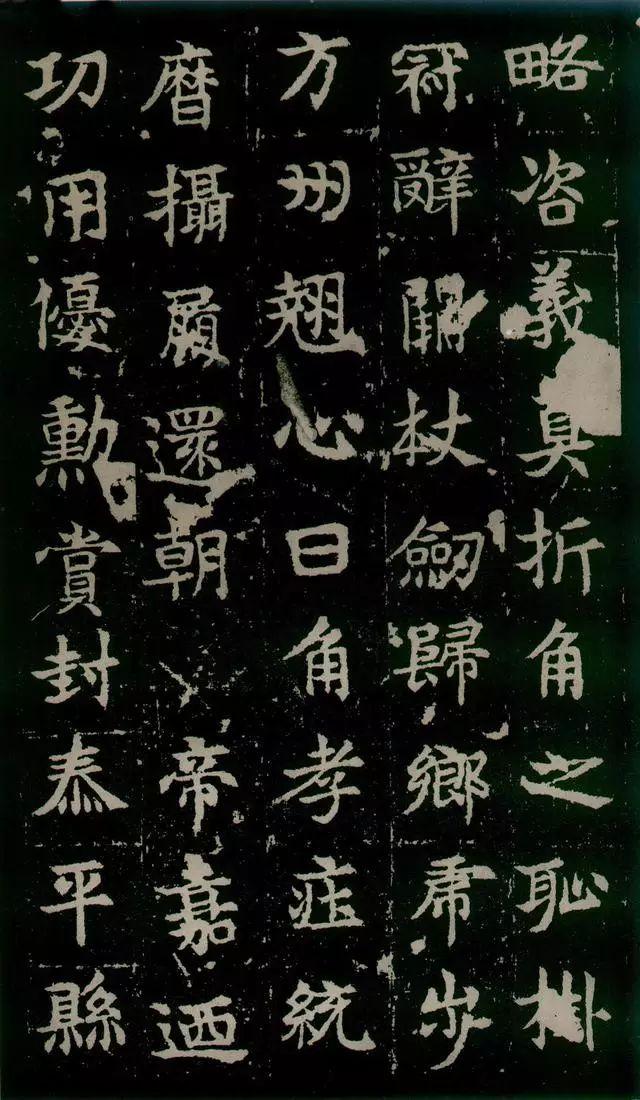 略咨義真折角之恥掛
冠辭闕杖劒歸鄉虎步
方州翹心日角孝莊統
曆攝還朝 帝嘉迺
功用優勳賞封泰平縣